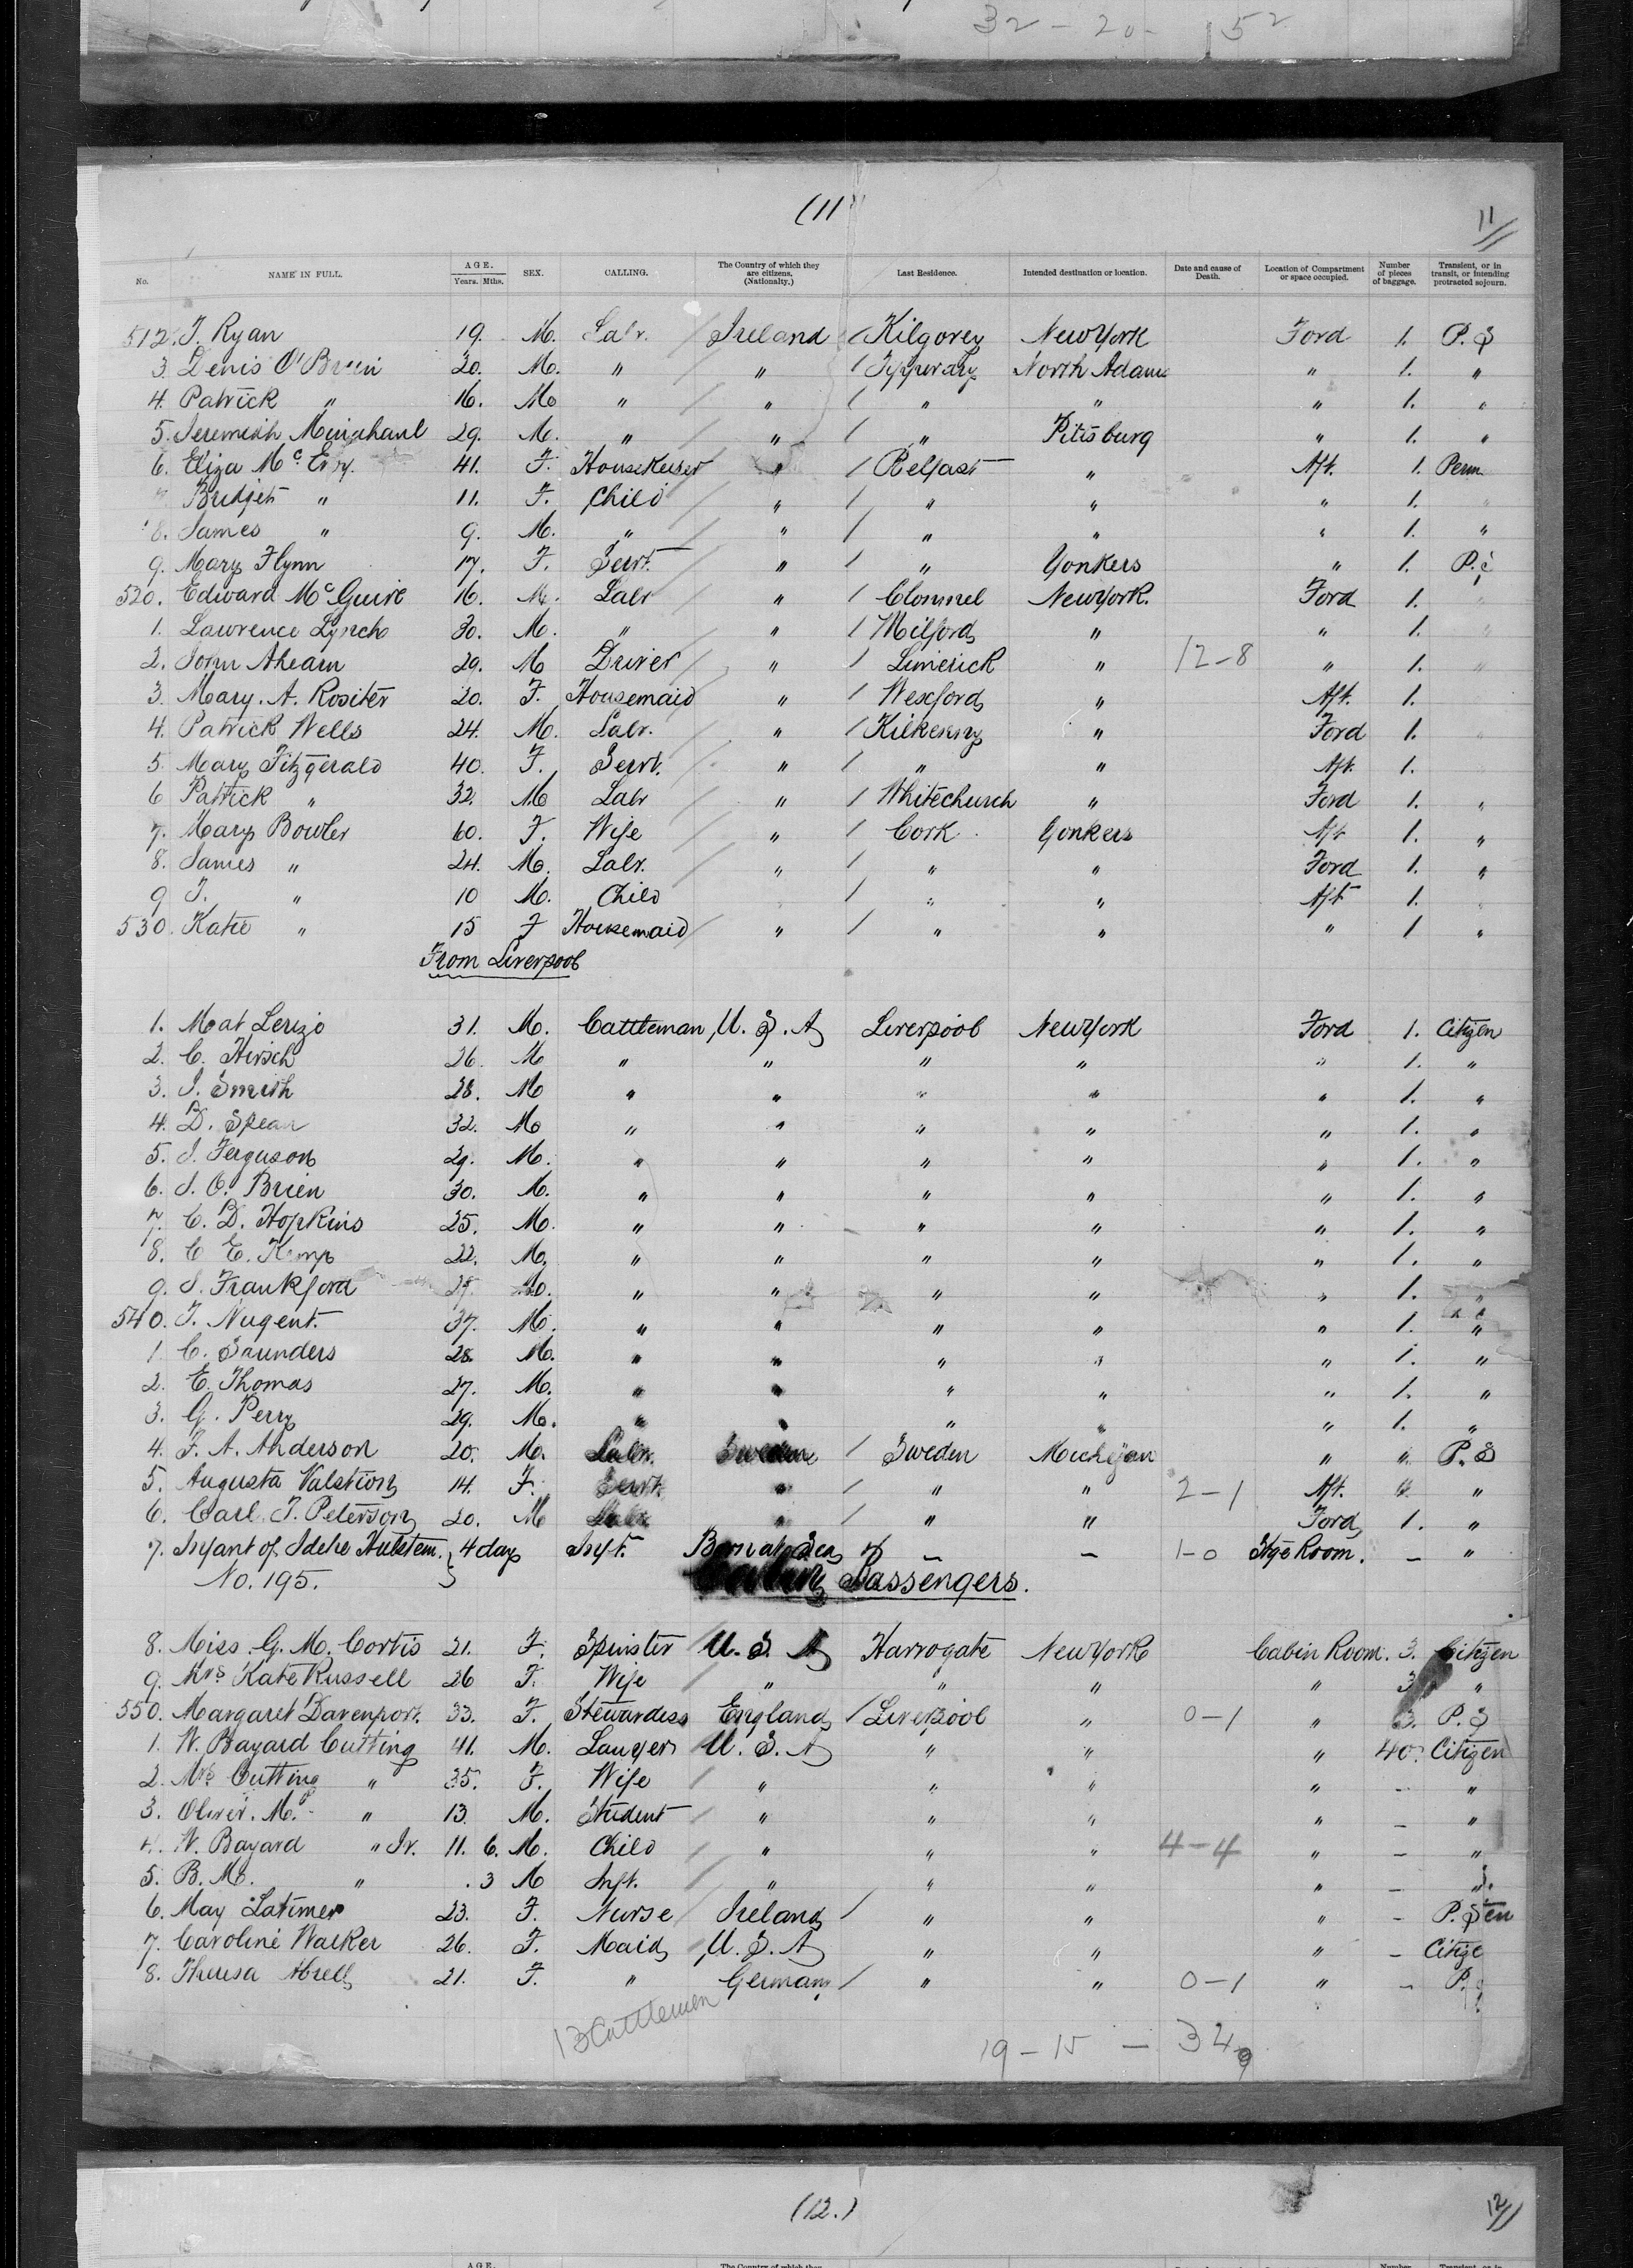 32 - 20 - 52
(11) 11
No. NAME IN FULL. AGE. Years. Mths. SEX. CALLING. The Country of which they are citizens. (Nationalty.) Last Residence. Intended destination or location. Date and cause of Death. Location of Compartment or space occupied. Number of pieces of baggage. Transient, or in transit, or intending protracted sojourn.
512. T. Ryan 19. M. Labr. Ireland / Kilgorey New York Ford 1. P. S
3. Denis O'Brien 20. M. " " / Tipperary North Adams " 1. "
4. Patrick " 16. M " " / " " " 1. "
5. Jeremiah 29. M. " " / " Pittsburg " 1. "
6. Eliza 41. F. Housekeeper " / Belfast " Aft. 1. Perm
7 Bridget " 11. F. Child " / " " " 1. "
8. James " 9. M. " " / " " " 1. "
9. Mary Flynn 17. F. Servt. " / " Yonkers " 1. P. S
520. Edward McGuire 16. M. Labr " / Clonmel New York. Ford 1. "
1. Lawrence Lynch 30. M. " " / Milford " " 1. "
2. John Ahearn 29. M Driver " / Limerick " 12-8 " 1. "
3. Mary. A. Rositer 20. F. Housemaid " / Wexford " Aft. 1.
4. Patrick Wells 24. M. Labr. " / Kilkenny " Ford 1. "
5. Mary Fitzgerald 40. F. Servt. " / " " Aft. 1.
6 Patrick " 32. M Labr " / Whitechurch " Ford 1. "
7. Mary Bowler 60. F. Wife " / Cork Yonkers Aft 1. "
8. James " 24. M. Labr. " / " " Ford 1. "
9 T. " 10 M. Child / " " Aft 1. "
530. Katie " 15 F Housemaid " / " " " 1 "
From Liverpool
1. Mat Lerizo 31. M. Cattleman U. S. A Liverpool New York Ford 1. Citizen
2. C. Hirsch 26. M " " " " " 1. "
3. J. Smith 28. M " " " " " 1. "
4. D. Spear 32. M " " " " " 1. "
5. J. Ferguson 29. M. " " " " " 1. "
6. J. O. Brien 30. M. " " " " " 1. "
7. C. D. Hopkins 25. M. " " " " " 1. "
8. C E. Kemp 22. M. " " " " " 1. "
9. J. Frankford M. " " " " " 1. "
540. T. Nugent. 37. M. " " " " " 1. "
1. C. Saunders 28. M. " " " " " 1. "
2. E. Thomas 27. M. " " " " " 1. "
3. G. Perry 29. M. " " " " " 1. "
4. F. A. Anderson 20. M. Labr. Sweden / Sweden Michigan " " P. S
5. Augusta Valstion 14. F. Servt. " / " " 2-1 Aft. " "
6. Carl. T. Peterson 20. M Labr " / " " Ford 1. "
7. Infant of Idehe Hulstem. } 4 days Inft. Born at Sea - - 1-0 Stge Room. - "
No. 195.
Passengers.
8. Miss. G. M. Cortis 21. F. Spinster U. S. A Harrogate New York Cabin Room. 3. Citizen
9. Mrs Kate Russell 26 F. Wife " " " " 3. "
550. Margaret Davenport. 33. F. Stewardess England / Liverpool " 0-1 " 3. P. S
1. W. Bayard Cutting 41. M. Lawyer U. S. A " " " 40. Citizen
2. Mrs Cutting " 35. F. Wife " " " " - "
3. Oliver. M. " 13. M. Student " " " " - "
4. W. Bayard " Jr. 11. 6. M. Child " " " 4-4 " - "
5. B. M. " .3 M Inft. " " " " - "
6. May Latimer 23. F. Nurse Ireland / " " " - P. S
7. Caroline Walker 26. F. Maid U. S. A " " " - Citizen
8. Theresa 21. F. " Germany / " " 0-1 " - P.
13 Cattlemen
19 - 15 - 34
(12.) 12
AGE. The Country of which they Number Transient, or in